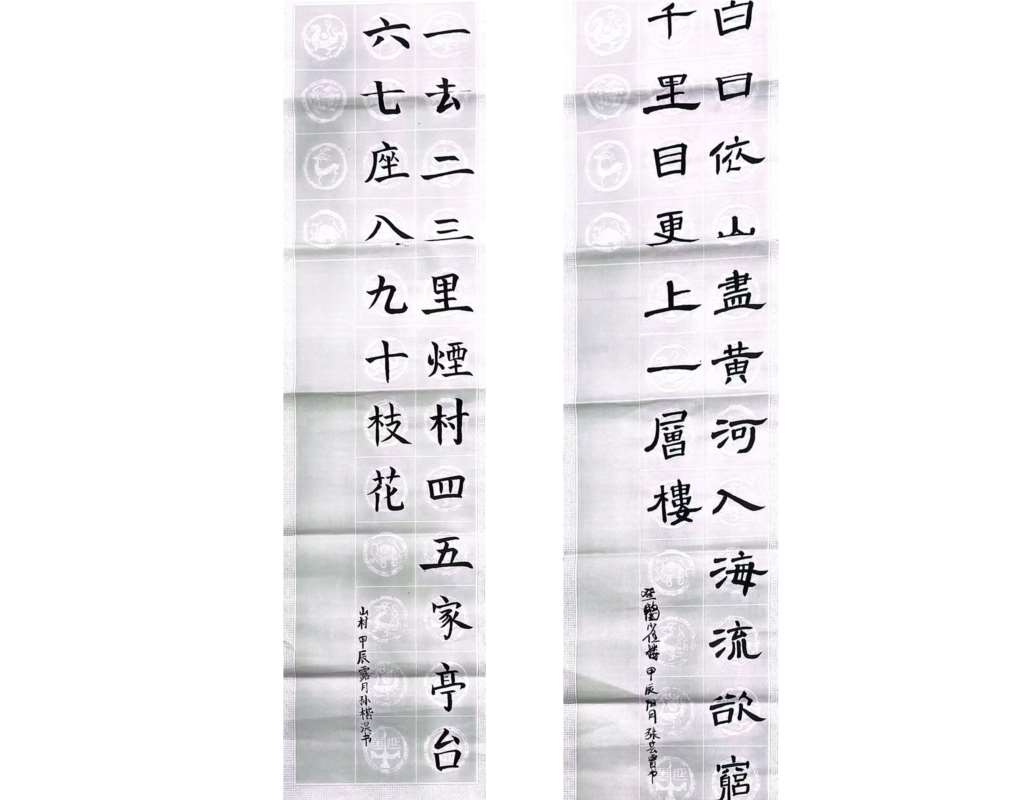 白日依山盡黄河入海流欲窮
千里目更上一層樓
甲辰 月 张 书
一去二三里煙村四五家亭台
六七座八九十枝花
山村 甲辰露月孙楷 书